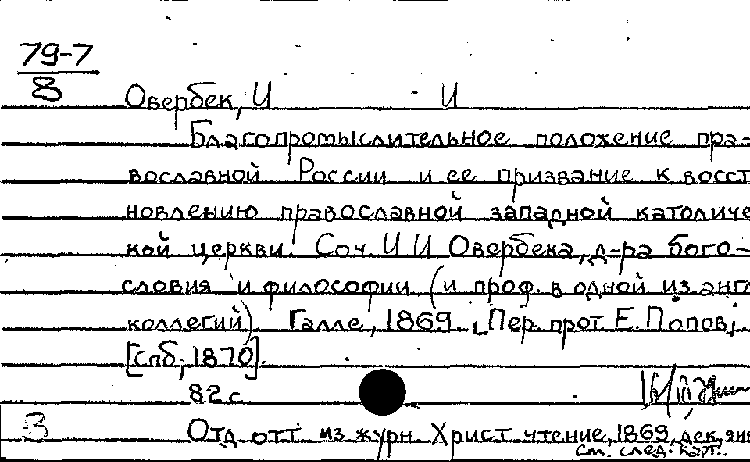 79-7
8
Овербек, И И
Благопромыслительное положение пра-
вославной России и ее призвание к восст
новлению православной западной католиче
кой церкви. Соч. И И Овербека, д-ра бого-
словия и философии (и проф. в одной из англ
коллегий) Галле, 1869. [Пер. прот Е. Попов]
[Спб, 1870].
82 с
З
Отд. отт из журн. Христ чтение, 1869, дек, янв
см. след. карт.